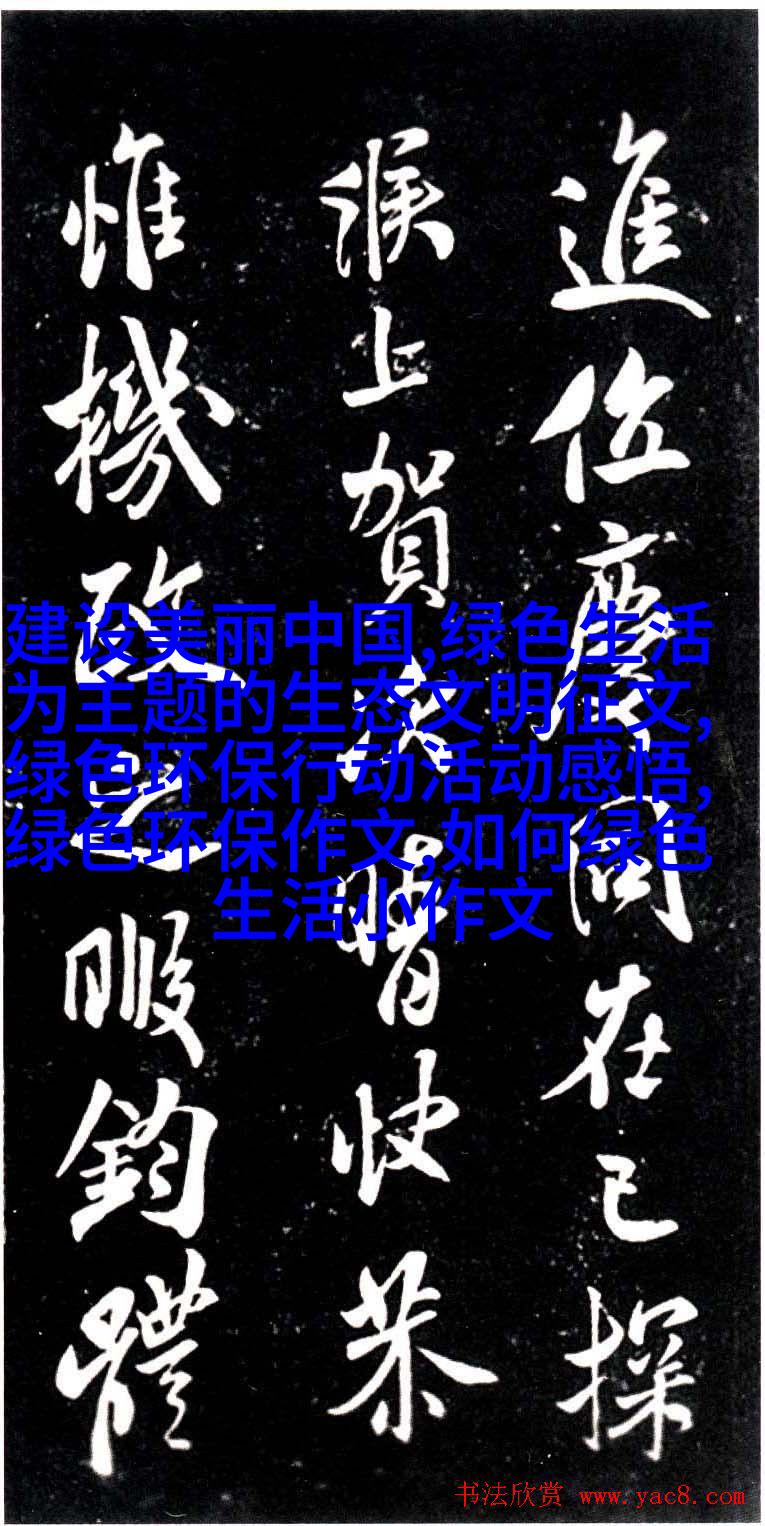 進位慶同在已探
候上賀次晴快恭
惟機政之暇鈞體
建设美丽中国,绿色生活
为主题的生态文明征文,
绿色环保行动活动感悟,
绿色环保作文,如何绿色
生活小作文
书法欣赏 www.yac8.com